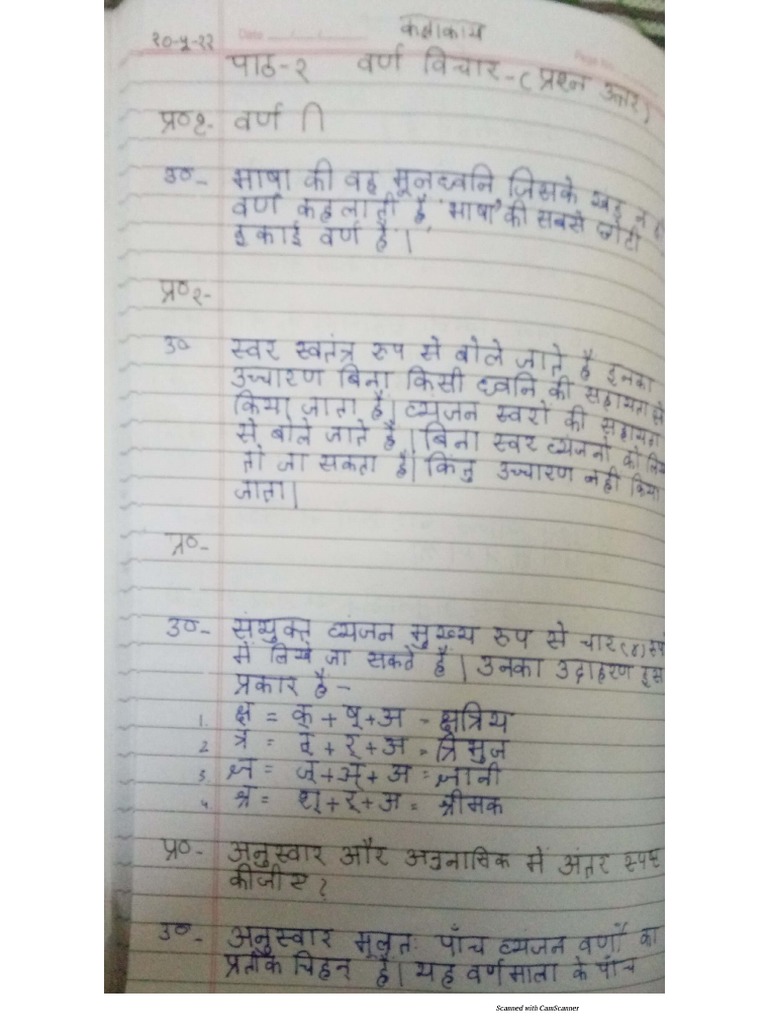 कक्षाकार्य
Date
१०-५-२२
Page No.
पाठ-२ वर्ण विचार-(प्रश्न उत्तर)
प्र०१- वर्ण
उ०- भाषा की वह मूलध्वनि जिसके खंड न हो
वर्ण कहलाती है 'भाषा' की सबसे छोटी
इकाई वर्ण है।
प्र०२-
उ० स्वर स्वतंत्र रूप से बोले जाते है इनका
उच्चारण बिना किसी ध्वनि की सहायता से
किया जाता है। व्यंजन स्वरो की सहायता
से बोले जाते है। बिना स्वर व्यंजनो को
तो जा सकता है। किंतु उच्चारण नही किया
जाता।
प्र०-
उ०- संयुक्त व्यंजन मुख्य रूप से चार (४)
में लिखे जा सकते है। उनका उदाहरण इस
प्रकार है -
1. क्ष = क् + ष् + अ - क्षत्रिय
2 त्र = त् + र् + अ = त्रिभुज
3. ज्ञ = ज् + ञ् + अ = ज्ञानी
4. श्र = श् + र् + अ = श्रीमक
प्र०- अनुस्वार और अनुनासिक में अंतर स्पष्ट
कीजीए?
उ०- अनुस्वार मूलतः पाँच व्यंजन वर्णों का
प्रतीक चिह्न है। यह वर्णमाला के पाँच
Scanned with CamScanner